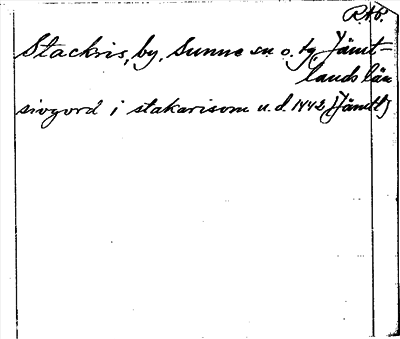 RAP.
Stackris, by, Sunne sn o. tg, Jämt-
lands län
siogord i stakarisom u.d. 1442 (Jämtl)